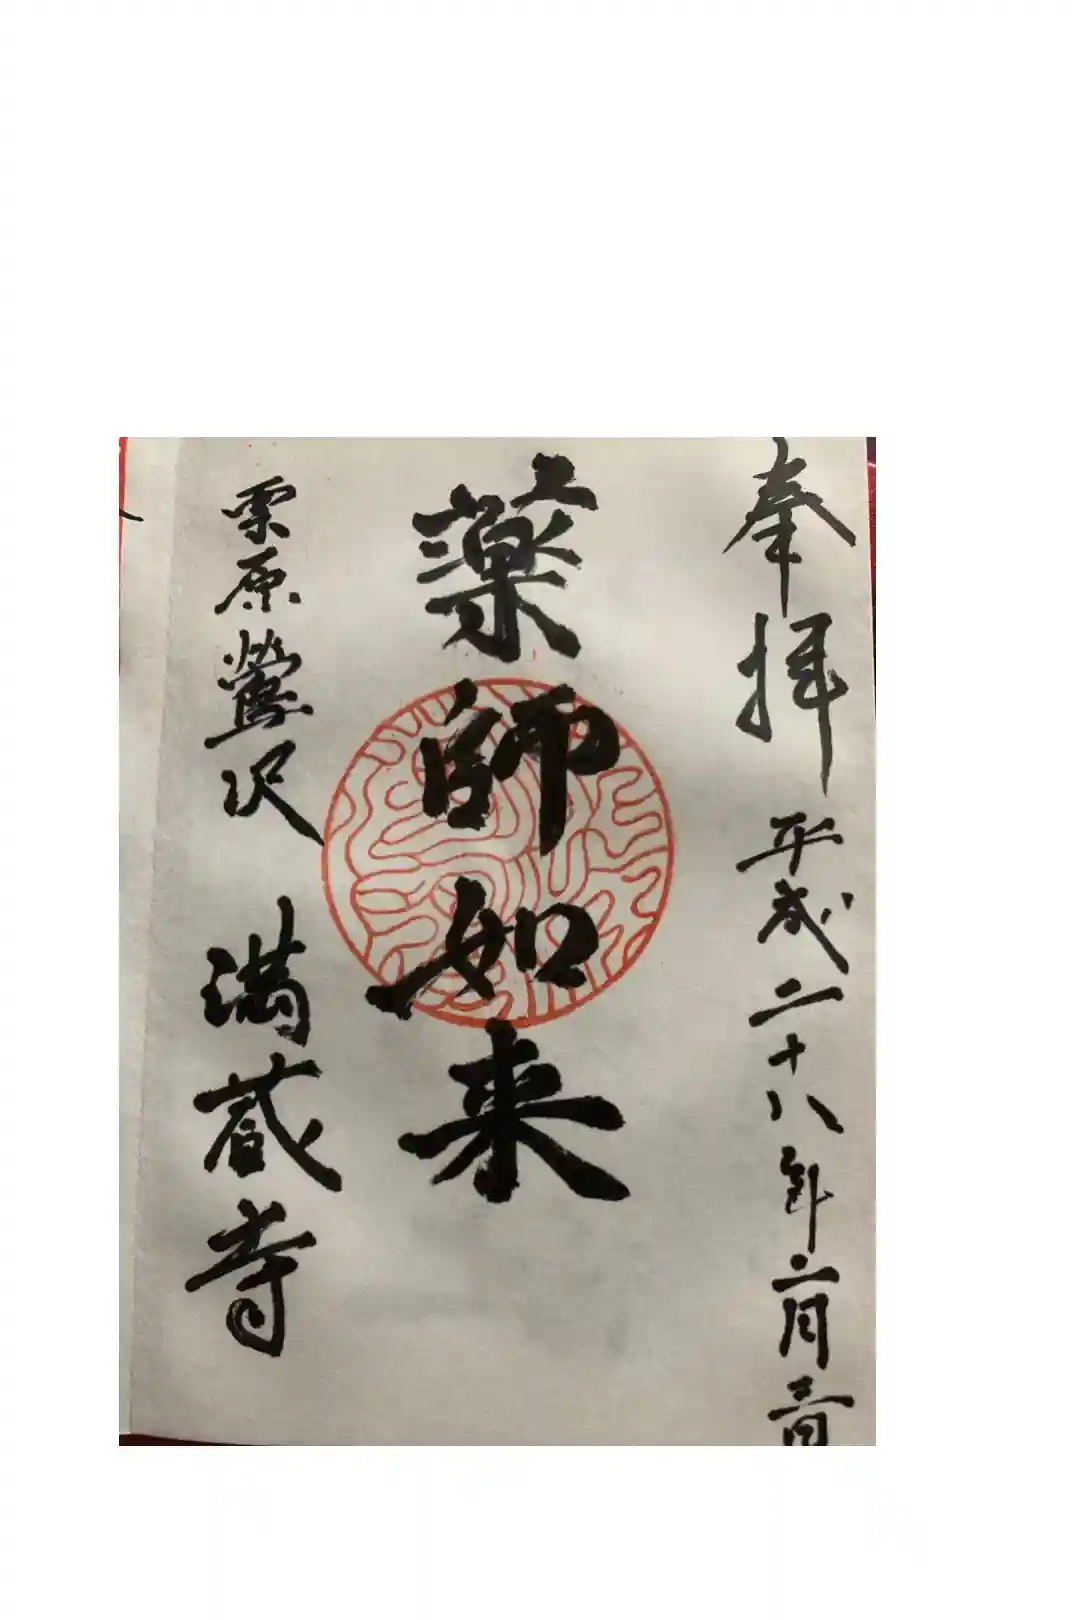 奉拝 平成二十八年二月三日
薬師如来
栗原鶯沢 満蔵寺